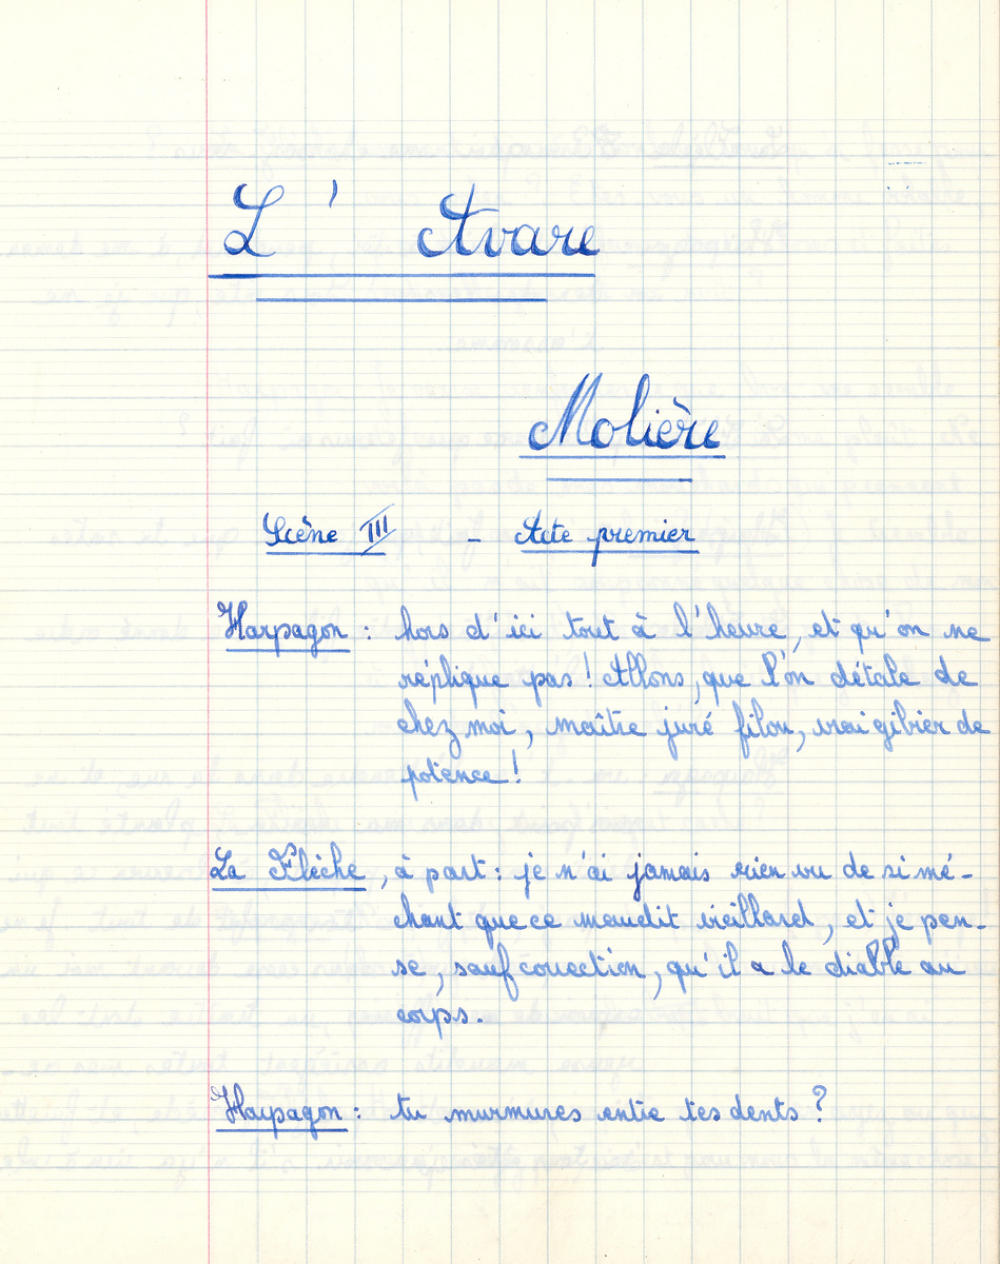 L' Avare
Molière
Scène III - Acte premier
Harpagon : hors d'ici tout à l'heure, et qu'on ne
réplique pas ! Allons, que l'on détale de
chez moi, maître juré filou, vrai gibier de
potence !
La Flèche, à part : je n'ai jamais rien vu de si mé-
chant que ce maudit vieillard, et je pen-
se, sauf correction, qu'il a le diable au
corps.
Harpagon : tu murmures entre tes dents ?